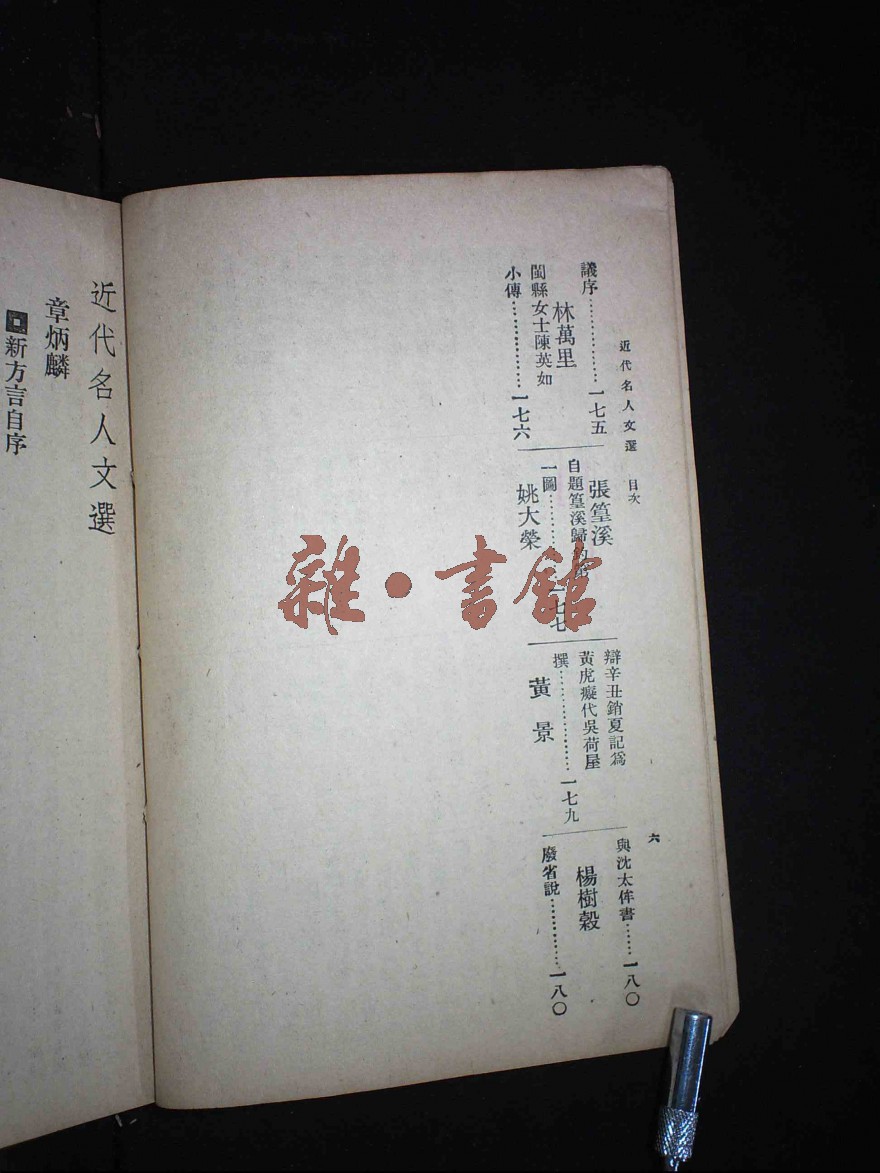 近代名人文選 目次 六
議序………………一七五
林萬里
閩縣女士陳英如
小傳………………一七六
張篁溪
自題篁溪歸
一圖………………一七七
姚大榮
辯辛丑銷夏記爲
黃虎癡代吳荷屋
撰………………一七九
黃景
與沈太侔書……一八〇
楊樹穀
廢省說…………一八〇
近代名人文選
章炳麟
新方言自序
雜·書館